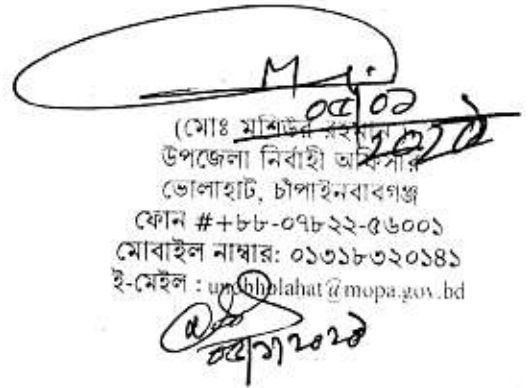 ০৫|০১
২০২৫
(মোঃ মশিউর রহমান
উপজেলা নির্বাহী অফিসার
ভোলাহাট, চাঁপাইনবাবগঞ্জ
ফোন #+৮৮-০৭৮২২-৫৬০০১
মোবাইল নাম্বার: ০১৩১৮৩২০১৪১
ই-মেইল : unobholahat@mopa.gov.bd